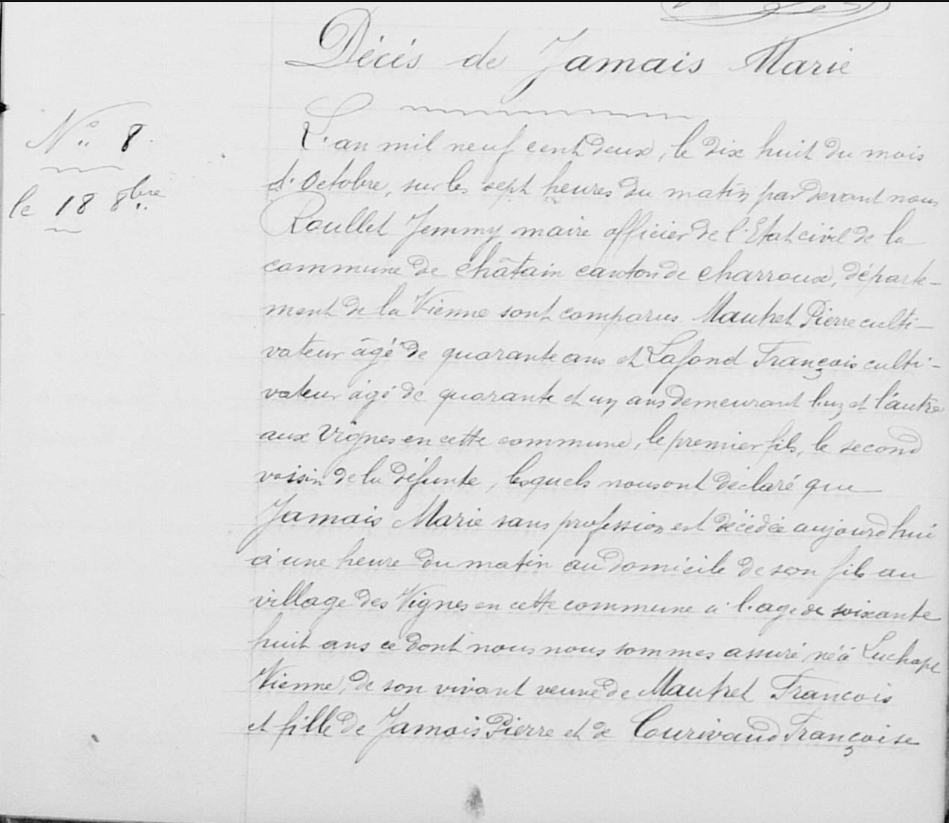 Décès de Jamais Marie
N° 8.
le 18 8bre
L'an mil neuf cent deux, le dix huit du mois
d'Octobre, sur les sept heures du matin par devant nous
Roullet Jemmy maire officier de l'Etat civil de la
commune de Châtain canton de Charroux, départe-
ment de la Vienne sont comparus Mautret Pierre culti-
vateur âgé de quarante ans et Lafond François culti-
vateur âgé de quarante et un ans demeurant l'un et l'autre
aux Vignes en cette commune, le premier fils, le second
voisin de la défunte, lesquels nous ont déclaré que
Jamais Marie sans profession est décédée aujourd'hui
à une heure du matin au domicile de son fils au
village des Vignes en cette commune à l'age de soixante
huit ans ce dont nous nous sommes assuré née à Luchapt
Vienne, de son vivant veuve de Mautret François
et fille de Jamais Pierre et de Courivaud Françoise